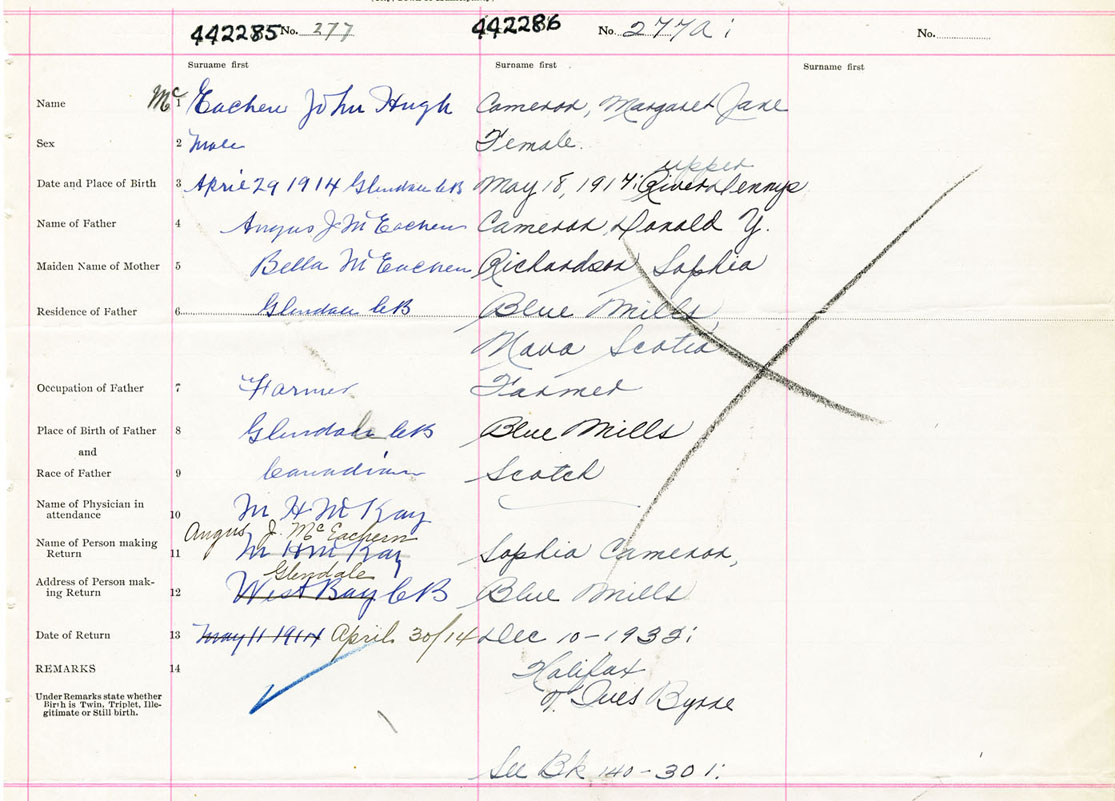 442285 No. 277 442286 No. 277a ; No.
Surname first Surname first Surname first
Name 1 McEachern John Hugh Cameron, Margaret Jane
Sex 2 Male Female.
upper
Date and Place of Birth 3 April 29 1914 Glendale CB May 18, 1914; River Dennys
Name of Father 4 Angus J McEachern Cameron, Donald Y.
Maiden Name of Mother 5 Bella McEachern Richardson, Sophia
Residence of Father 6 Glendale CB Blue Mills,
Nova Scotia
Occupation of Father 7 Farmer Farmer
Place of Birth of Father 8 Glendale CB Blue Mills
and
Race of Father 9 Canadian Scotch
Name of Physician in
attendance 10 M H McKay
Angus J. McEachern
Name of Person making
Return 11 M H McKay Sophia Cameron,
Glendale
Address of Person mak-
ing Return 12 West Bay CB Blue Mills
Date of Return 13 May 11 1914 April 30/14 Dec 10-1932;
REMARKS 14 Halifax
Under Remarks state whether
Birth is Twin, Triplet, Ille-
gitimate or Still birth.
Ives Byrne
See Bk 140-301;